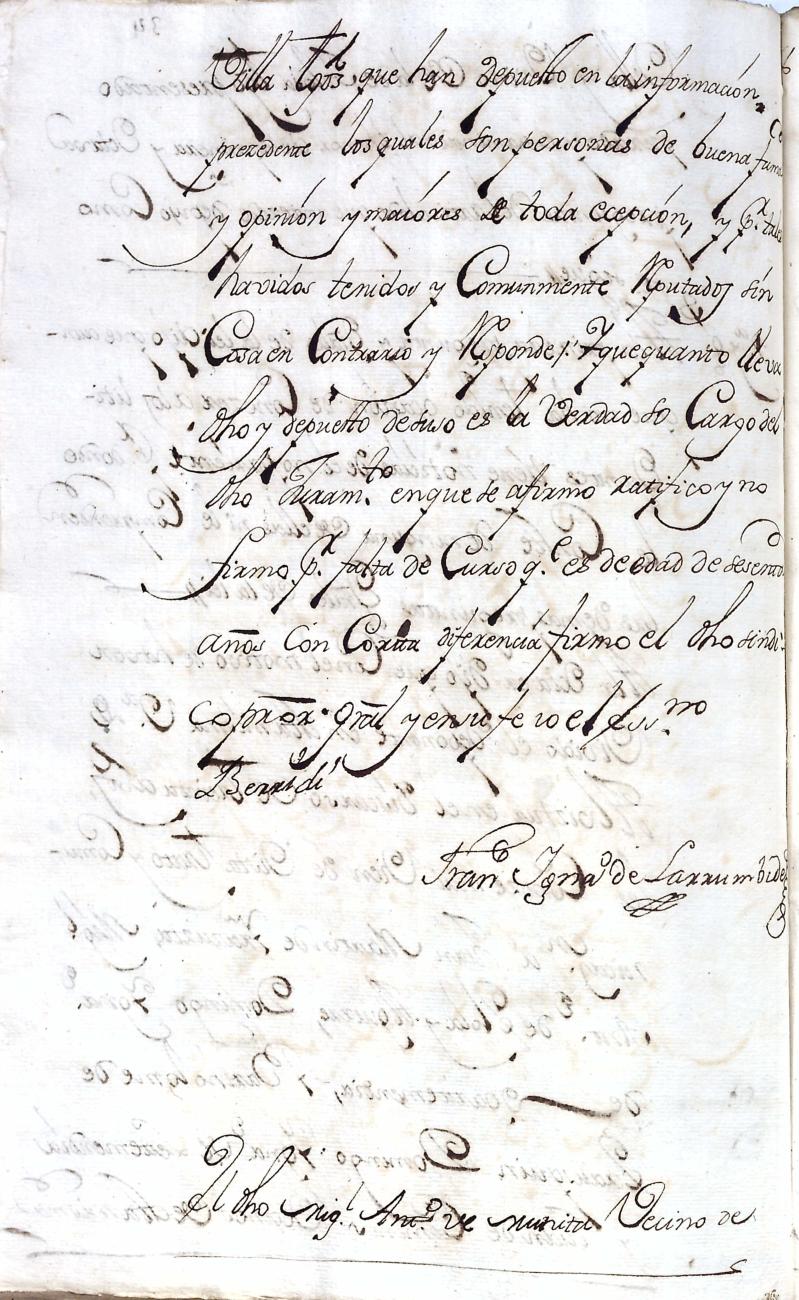 Villa tgos que han depuesto en la informacion
prezedente los quales son personas de buena fama
y opinion y maiores de toda ecepcion, y pr. tales
havidos tenidos y Comunmente Reputados sin
Cosa en Contrario y Responde /: Y que quanto lleva
dho y depuesto de suso es la Verdad so Cargo del
dho Juram.to en que se afirmo ratifico y no
firmo pr. falta de Curso q.e es de edad de sesenta
años Con Corta diferencia firmo el dho sindi
co pror. Gral y en su fe io el ess.no
Franco Ignao de Larrumbide
El dho Mig.l Anto de Murita Vecino de